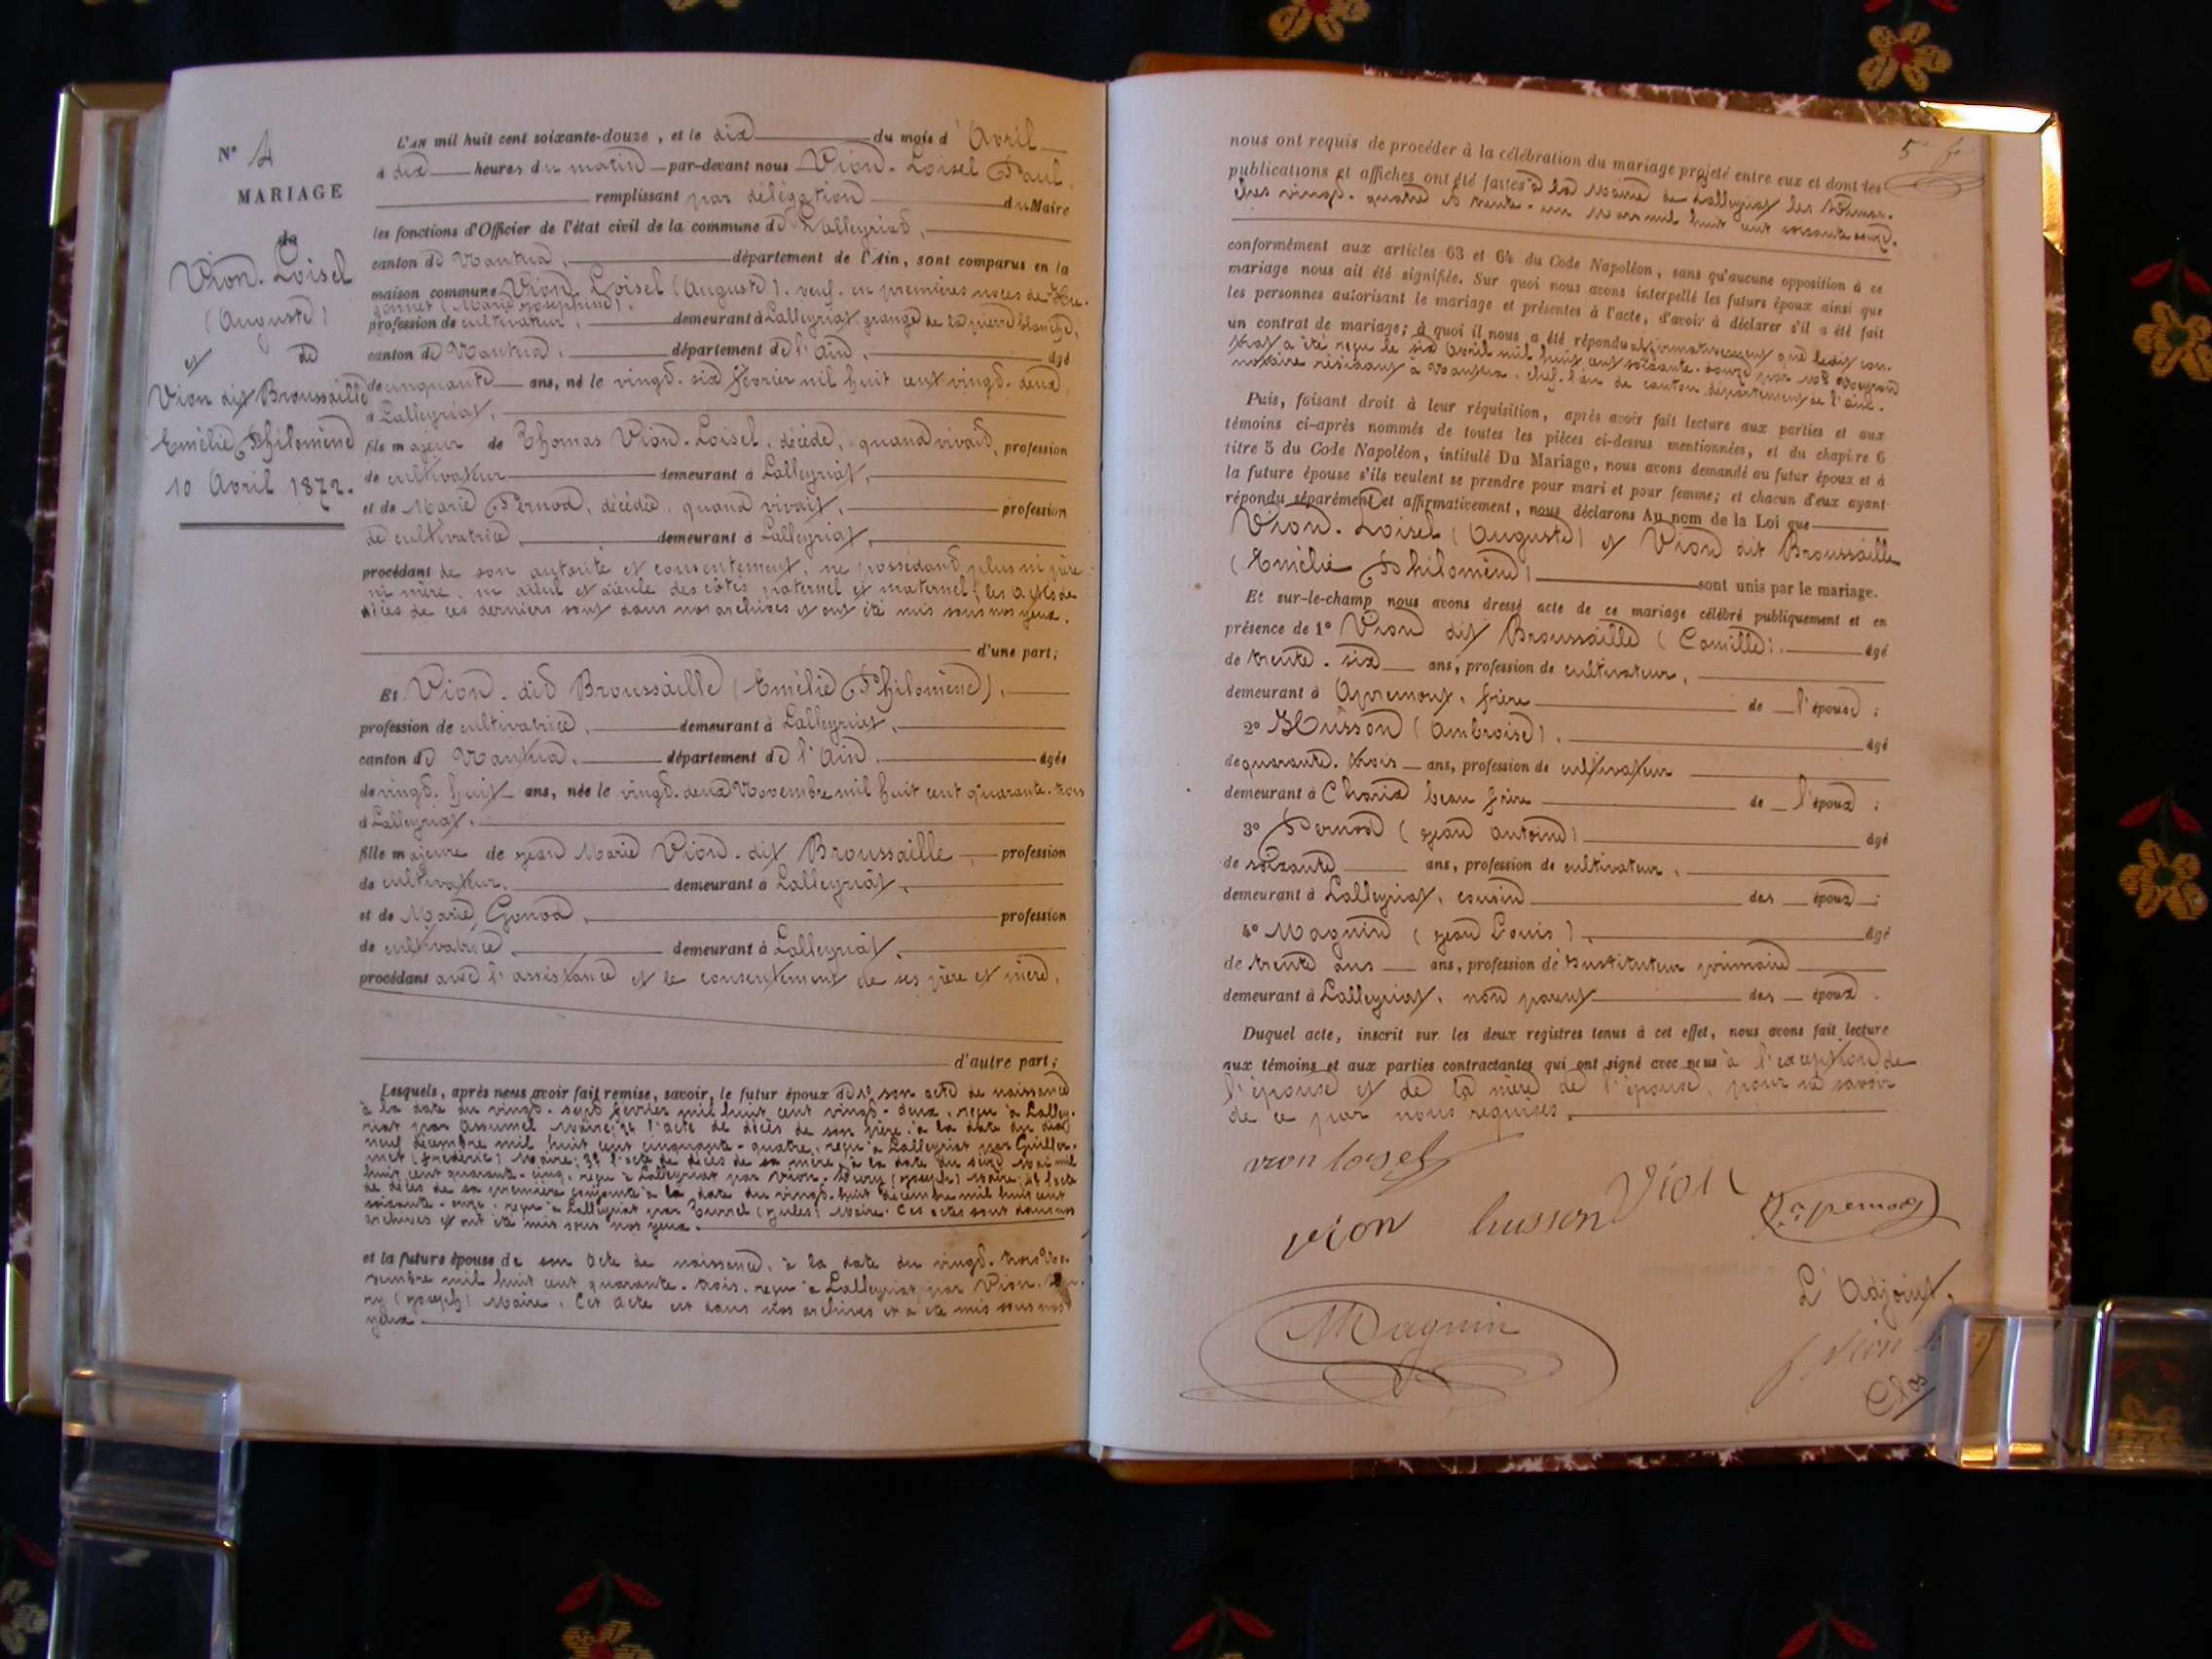 N° 4
MARIAGE
de
Vion-Loisel
(Auguste)
et de
Vion dit Broussaille
Emélie Philomène
10 Avril 1872.
L'AN mil huit cent soixante-douze, et le dix du mois d'Avril
à dix heures du matin par-devant nous Vion-Loisel Paul,
remplissant par délégation du Maire
les fonctions d'Officier de l'état civil de la commune de Lalleyriat,
canton de Nantua, département de l'Ain, sont comparus en la
maison commune Vion Loisel (Auguste), veuf en premières noces de Hu-
gonnet (Marie Josephine),
profession de cultivateur, demeurant à Lalleyriat, grange de la pierre blanche,
canton de Nantua, département de l'Ain, âgé
de cinquante ans, né le vingt-six février mil huit cent vingt-deux,
à Lalleyriat,
fils majeur de Thomas Vion-Loisel, décédé, quand vivait, profession
de cultivateur demeurant à Lalleyriat,
et de Marie Pernod, décédée, quand vivait, profession
de cultivatrice, demeurant à Lalleyriat,
procédant de son autorité et consentement, ne possédant plus ni père
ni mère, ni aïeul et aïeule des côtés paternel et maternel; les actes de
décès de ces derniers sont dans nos archives et ont été mis sous nos yeux.
d'une part;
Et Vion-dit Broussaille (Emélie Philomène),
profession de cultivatrice, demeurant à Lalleyriat,
canton de Nantua, département de l'Ain, âgée
de vingt-huit ans, née le vingt-deux Novembre mil huit cent quarante-trois
à Lalleyriat,
fille majeure de Jean Marie Vion-dit Broussaille, profession
de cultivateur, demeurant à Lalleyriat,
et de Marie Gonod, profession
de cultivatrice demeurant à Lalleyriat,
procédant avec l'assistance et le consentement de ses père et mère,
d'autre part;
Lesquels, après nous avoir fait remise, savoir, le futur époux de 1° son acte de naissance
à la date du vingt-sept février mil huit cent vingt-deux, reçu à Lalley-
riat par Assumel Maire; 2° l'acte de décès de son père, à la date du dix
neuf décembre mil huit cent cinquante-quatre, reçu à Lalleyriat par Guiller-
met (frédéric) Maire; 3° l'acte de décès de sa mère, à la date du seize Mai mil
huit cent quarante-cinq, reçu à Lalleyriat par Vion-Dury (Joseph) Maire; 4° l'acte
de décès de sa première conjointe à la date du vingt-huit décembre mil huit cent
soixante-onze, reçu à Lalleyriat par Turrel (Jules) Maire. Ces actes sont dans nos
archives et ont été mis sous nos yeux.
et la future épouse de son acte de naissance, à la date du vingt-trois No-
vembre mil huit cent quarante-trois, reçu à Lalleyriat, par Vion-Du-
ry (Joseph) Maire. Cet acte est dans nos archives et a été mis sous nos
yeux.
5e f
nous ont requis de procéder à la célébration du mariage projeté entre eux et dont les
publications et affiches ont été faites à la Mairie de Lalleyriat les Diman-
ches vingt-quatre et trente-un Mars mil huit cent soixante douze.
conformément aux articles 63 et 64 du Code Napoléon, sans qu'aucune opposition à ce
mariage nous ait été signifiée. Sur quoi nous avons interpellé les futurs époux ainsi que
les personnes autorisant le mariage et présentes à l'acte, d'avoir à déclarer s'il a été fait
un contrat de mariage; à quoi il nous a été répondu affirmativement que ledit con-
trat a été reçu le six Avril mil huit cent soixante-douze par Me
notaire résidant à Nantua, chef-lieu de canton département de l'Ain.
Puis, faisant droit à leur réquisition, après avoir fait lecture aux parties et aux
témoins ci-après nommés de toutes les pièces ci-dessus mentionnées, et du chapitre 6
titre 5 du Code Napoléon, intitulé Du Mariage, nous avons demandé au futur époux et à
la future épouse s'ils veulent se prendre pour mari et pour femme; et chacun d'eux ayant
répondu séparément et affirmativement, nous déclarons Au nom de la Loi que
Vion-Loisel (Auguste) et Vion dit Broussaille
(Emélie Philomène) sont unis par le mariage.
Et sur-le-champ nous avons dressé acte de ce mariage célébré publiquement et en
présence de 1° Vion dit Broussaille (Camille), âgé
de trente-six ans, profession de cultivateur,
demeurant à Apremont, frère de l'épouse;
2° Husson (Ambroise), âgé
de quarante-trois ans, profession de cultivateur
demeurant à Charix beau frère de l'époux;
3° Pernod (Jean Antoine) âgé
de soixante ans, profession de cultivateur,
demeurant à Lalleyriat, cousin des époux;
4° Magnin (Jean Louis), âgé
de trente ans ans, profession de Instituteur primaire
demeurant à Lalleyriat, non parent des époux.
Duquel acte, inscrit sur les deux registres tenus à cet effet, nous avons fait lecture
aux témoins et aux parties contractantes qui ont signé avec nous à l'exception de
l'épouse et de la mère de l'épouse, pour ne savoir
de ce par nous requises.
vion loisel
vion husson Vion
pernod
Magnin
L'Adjoint,
vion
Clos